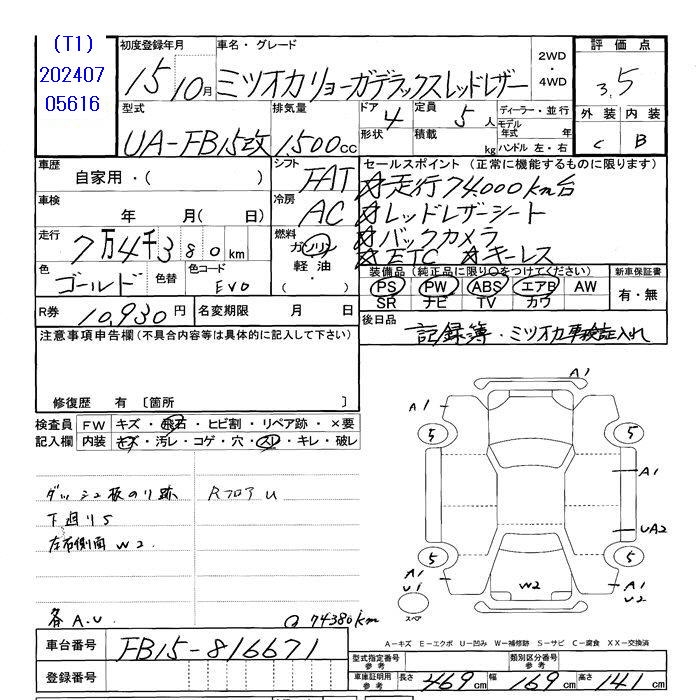 (T1)
202407
05616
初度登録年月
15
10月
車名・グレード
ミツオカリョーガデラックスレッドレザー
2WD
・
4WD
評価点
3.5
型式
UA-FB15改
排気量
1500cc
ドア
4
形状
定員
5人
積載
kg
ディーラー・並行
モデル年式 年
ハンドル 左・右
外装
内装
C
B
車歴
自家用・( )
シフト
FAT
セールスポイント (正常に機能するものに限ります)
☆走行74,000km台
☆レッドレザーシート
☆バックカメラ
☆ETC ☆キーレス
車検
年 月(日)
冷房
AC
走行
7万4千380km
燃料
ガソリン
軽油・
( )
色
ゴールド
色替
色コード
EV0
装備品(純正品に限り○をつけてください)
PS PW ABS エアB AW
SR ナビ TV カワ
新車保証書
有・無
R券
10,930円
名変期限 月 日
後日品
記録簿・ミツオカ車検証入れ
注意事項申告欄(不具合内容等は具体的に記入して下さい)
修復歴 有 〔箇所 〕
検査員
記入欄
FW
キズ・飛石・ヒビ割・リペア跡・×要
内装
キズ・汚レ・コゲ・穴・スレ・キレ・破レ
ダッシュ板のり跡
RフロアU
下廻りS
左右側面 W2.
各A.U
74380km
A1
A1
5
5
A1
UA2
5
5
A1
U1
W2
A1
U2
スペア
A-キズ E-エクボ U-凹み W-補修跡 S-サビ C-腐食 XX-交換済
車台番号
FB15-816671
登録番号
型式指定番号
参考
類別区分番号
参考
車庫証明用
参考
長さ
469cm
幅
169cm
高さ
141cm